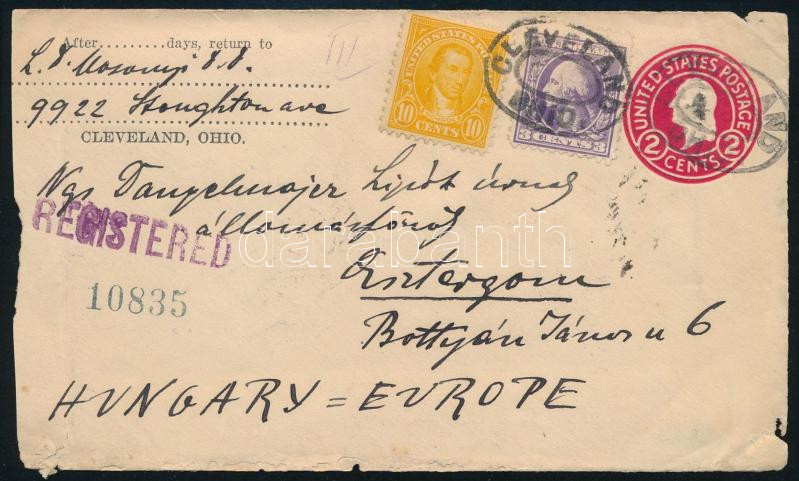 After.........days, return to
9922 Stoughton ave
CLEVELAND, OHIO.
III
UNITED STATES POSTAGE
10 CENTS 10
3 CENTS 3
CLEVELAND
OHIO
UNITED STATES POSTAGE
2 CENTS 2
Ngs Tangelmajer Lipót úrnak
állomásfőnök
REGISTERED
darabanth
10835
Esztergom
Bottyán János u 6
HUNGARY = EUROPE